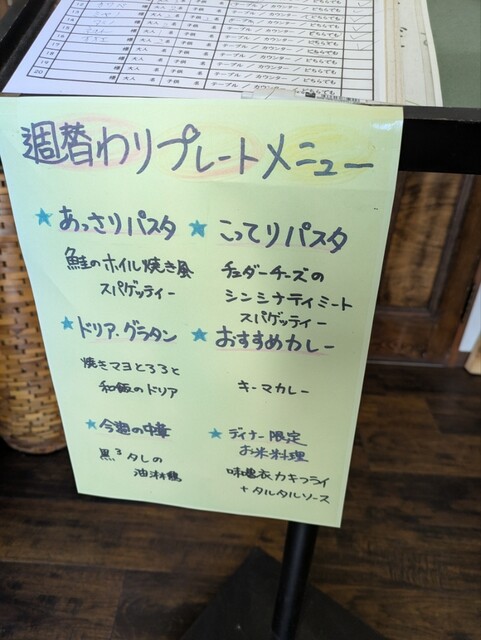 様 大人 名 子供 名 テーブル ／ カウンター ／ どちらでも
16 様 大人 名 子供 名 テーブル ／ カウンター ／ どちらでも
17 様 大人 名 子供 名 テーブル ／ カウンター ／ どちらでも
18 様 大人 名 子供 名 テーブル ／ カウンター ／ どちらでも
19 様 大人 名 子供 名 テーブル ／ カウンター ／ どちらでも
20 様 大人 名 子供 名 テーブル ／ カウンター ／ どちらでも
週替わりプレートメニュー
★あっさりパスタ
鮭のホイル焼き風
スパゲッティー
★こってりパスタ
チェダーチーズの
シンシナティミート
スパゲッティー
★ドリア・グラタン
焼きマヨとろろと
和飯のドリア
★おすすめカレー
キーマカレー
★今週の中華
黒³タレの
油淋鶏
★ディナー限定
お米料理
味噌衣カキフライ
＋タルタルソース